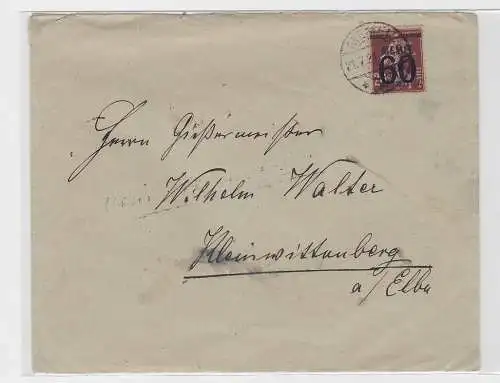 60
21.7.
Herrn Gießermeister
Wilhelm Walter
Kleinwittenberg
a/Elbe